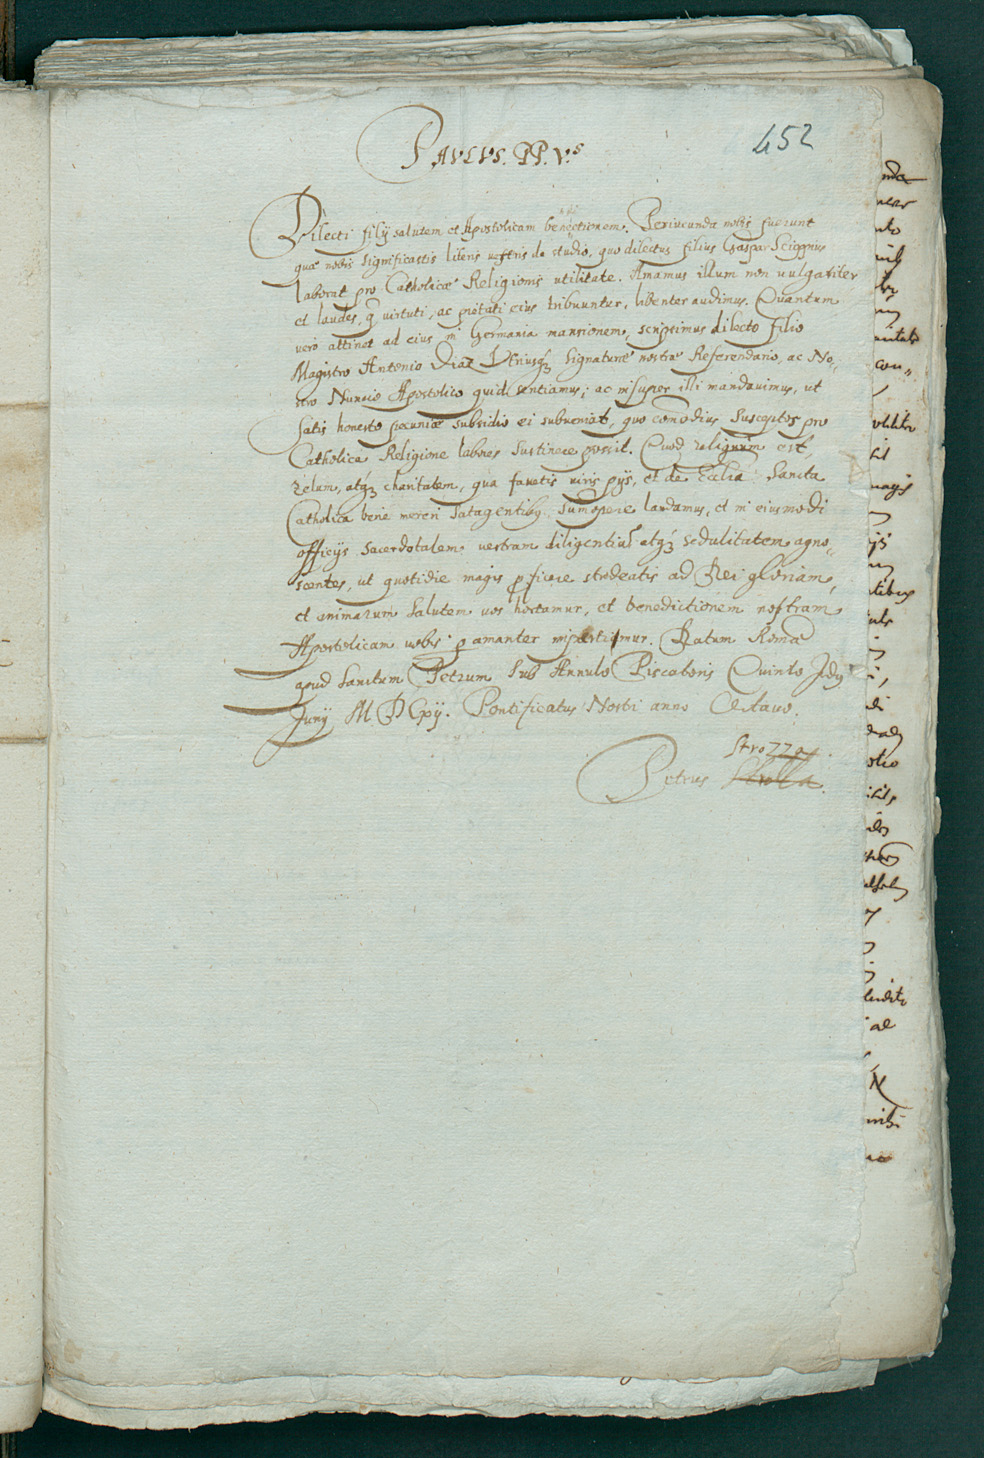 452
PAVLVS. PP. V.s
Dilecti filij salutem et Apostolicam benedictionem. Periucunda nobis fuerunt
quæ nobis significastis literis vestris de studio, quo dilectus filius Gaspar Scioppius
laborat pro Catholicæ Religionis utilitate. Amamus illum non uulgariter
et laudes, q uirtuti, ac pietati eius tribuuntur, libenter audimus. Quantum
uero attinet ad eius in Germania mansionem, scripsimus dilecto filio
Magistro Antonio Diaz Utriusq; Signaturæ nostræ Referendario, ac No-
stro Nuncio Apostolico quid sentiamus, ac insuper illi mandauimus, ut
satis honesto pecuniæ subsidio ei subueniat, quo comodius susceptos pro
Catholica Religione labores sustinere possit. Quod reliquum est,
zelum, atq; charitatem, qua fauetis uiris pijs, et de Ecclia Sancta
Catholica bene mereri satagentibq, sumopere laudamus, et in eiusmodi
officijs sacerdotalem uestram diligentiã atq; sedulitatem agno-
scentes, ut quotidie magis pficere studeatis ad Dei gloriam,
et animarum salutem uos hortamur, et benedictionem nostram
Apostolicam uobis pamanter impertimur. Datum Romæ
apud Sanctum Petrum sub Annulo Piscatoris Quinto Idq
Junij M DCxij. Pontificatus Nostri anno Octauo.
Strozza.
Petrus